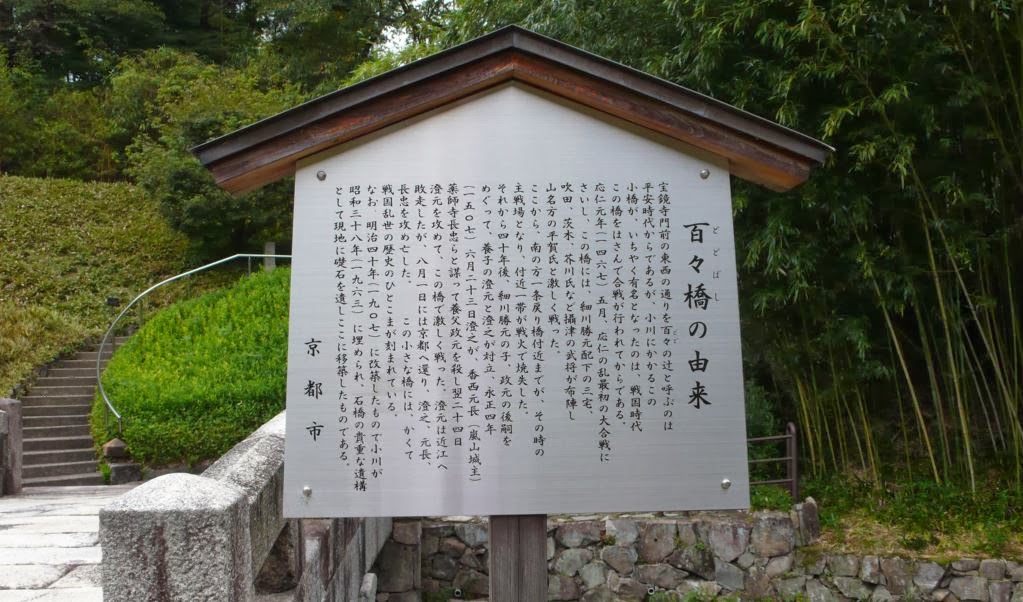 百々橋の由来
どどばし
宝鏡寺門前の東西の通りを百々の辻と呼ぶのは
どど
平安時代からであるが、小川にかかるこの
小橋が、いちやく有名となったのは、戦国時代
この橋をはさんで合戦が行われてからである。
応仁元年(一四六七)五月、応仁の乱最初の大合戦に
さいし、この橋には、細川勝元配下の三宅、
吹田、茨木、芥川氏など摂津の武将が布陣し
山名方の平賀氏と激しく戦った。
ここから、南の方一条戻り橋付近までが、その時の
主戦場となり、付近一帯が戦火で焼失した。
それから四十年後、細川勝元の子、政元の後嗣を
めぐって、養子の澄元と澄之が対立、永正四年
(一五〇七)六月二十三日澄之が、香西元長(嵐山城主)
薬師寺長忠らと謀って養父政元を殺し翌二十四日
澄元を攻めて、この橋で激しく戦った。澄元は近江へ
敗走したが、八月一日には京都へ還り、澄之、元長、
長忠を攻め亡した。 この小さな橋には、かくて
戦国乱世の歴史のひとこまが刻まれている。
なお、明治四十年(一九〇七)に改築したもので小川が
昭和三十八年(一九六三)に埋められ、石橋の貴重な遺構
として現地に礎石を遺しここに移築したものである。
京都市